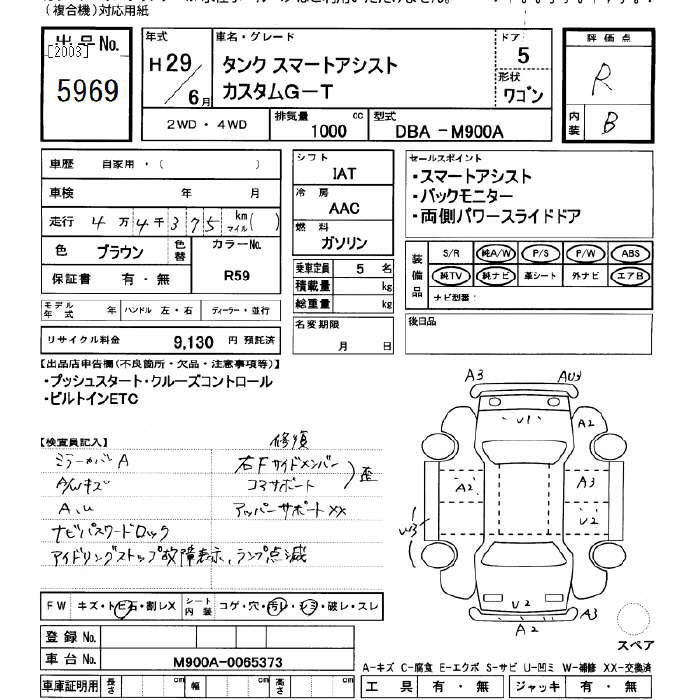 (複合機)対応用紙
出品No.
[2003]
5969
年式
H29/6月
車名・グレード
タンク スマートアシスト
カスタムG-T
ドア
5
形状
ワゴン
評価点
R
内装
B
2WD・4WD
排気量 1000 cc
型式 DBA-M900A
車歴 自家用・( )
車検 年 月
走行 4万4千375 km マイル( )
色 ブラウン 色替
カラーNo.
R59
保証書 有・無
モデル年式 年 ハンドル 左・右 ディーラー・並行
リサイクル料金 9,130 円 預託済
シフト
IAT
冷房
AAC
燃料
ガソリン
乗車定員 5 名
積載量 kg
総重量 kg
名変期限
月 日
セールスポイント
・スマートアシスト
・バックモニター
・両側パワースライドドア
装備品
S/R 純A/W P/S P/W ABS
純TV 純ナビ 革シート 外ナビ エアB
ナビ型番:
後日品
【出品店申告欄(不良箇所・欠品・注意事項等)】
・プッシュスタート・クルーズコントロール
・ビルトインETC
【検査員記入】
ミラーカバーA
A/Wキズ
A、U
ナビパスワードロック
アイドリングストップ故障表示、ランプ点滅
修復
右Fサイドメンバー
コアサポート
)歪
アッパーサポートXX
A3
U1
A2
A2
A3
U2
W3
U2
A2
A3
スペア
FW キズ・トビ石・割レX
シート内装 コゲ・穴・汚レ・シミ・破レ・スレ
登録No.
車台No. M900A-0065373
車庫証明用 長さ cm 幅 cm 高さ cm
A-キズ C-腐食 E-エクボ S-サビ U-凹ミ W-補修 XX-交換済
工具 有・無 ジャッキ 有・無